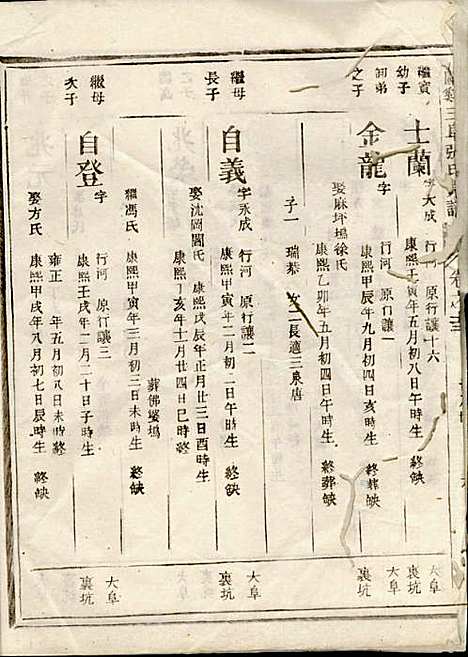 幼子
士蘭
字大成 行河 原行讓十六
康熙壬寅年五月初八日午時生 終缺
大阜
裏坑
之子
金龍
字 行河 原行讓一
康熙甲辰年九月初四日亥時生 終葬缺
娶麻坪塢徐氏
康熙乙卯年五月初四日未時生 終葬缺
子一 瑞恭 女一長適三泉唐
大阜
裏坑
繼母
長子
自義
字永成 行河 原行讓二
康熙甲寅年二月初二日午時生 終缺
娶沈岡閻氏 康熙戊辰年正月廿三日酉時生
康熙丁亥年十二月廿四日巳時終
葬佛婆塢
繼馮氏 康熙甲寅年三月初三日未時生 終缺
大阜
裏坑
大阜
裏坑
繼母
次子
自登
字 行河 原行讓三
康熙壬戌年二月二十日子時生
雍正 年五月初八日未時終
娶方氏 康熙甲戌年八月初七日辰時生 終缺
大阜
裏坑